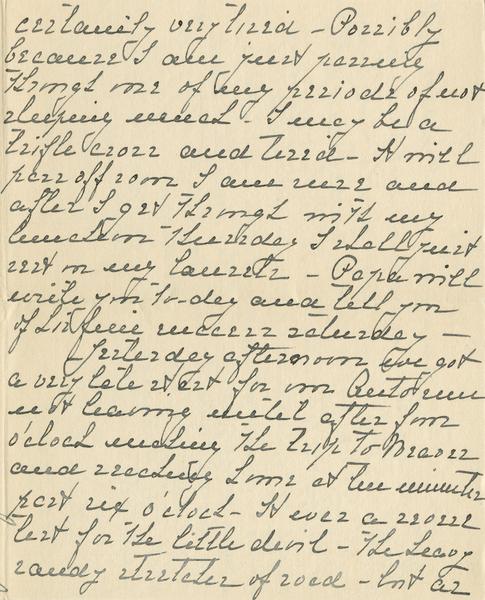 certainly very tired - Possibly
because I am just passing
through one of my periods of not
sleeping much - I may be a
trifle cross and tired - It will
pass off soon I am sure and
after I get through with my
luncheon Thursday I shall just
rest on my laurels - Papa will
write you to-day and tell you
of his fine success Saturday -
Yesterday afternoon we got
a very late start for our Auto run
not leaving until after four
o'clock making the trip to Beaver
and reaching home at ten minutes
past six o'clock - It was a severe
test for the little devil - The heavy
sandy stretches of road - but as